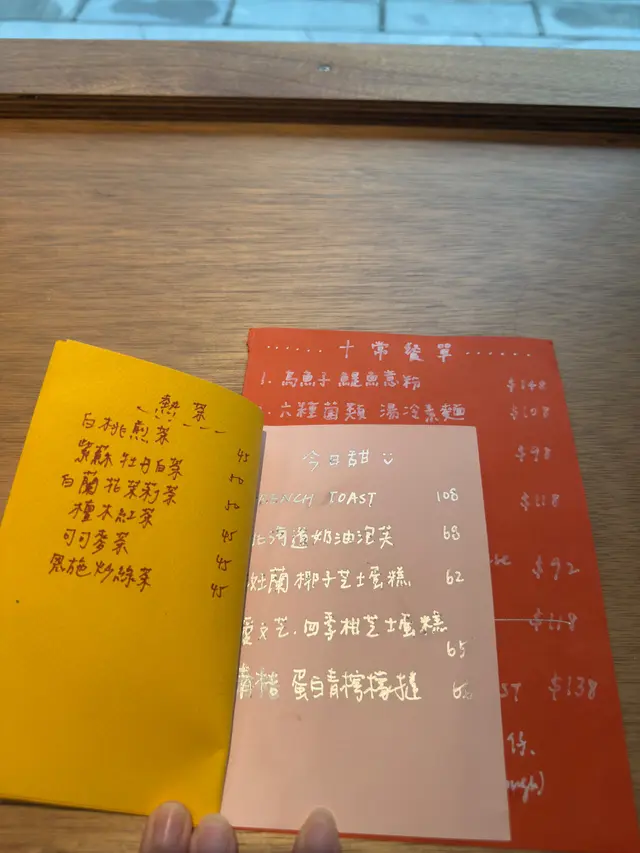 熱茶
白桃煎茶 45
紫蘇牡丹白茶 50
白蘭花茉莉茶 50
檀木紅茶 45
可可麥茶 45
焙炒綠茶 45
今日甜
FRENCH TOAST 108
北海道奶油泡芙 68
蘭椰子芝士蛋糕 62
愛文芒.四季柑芝士蛋糕 65
蛋白青檸檬撻
十常餐單
1. 烏魚子鯷魚蔥粉 $148
六種菌類 湯冷素麵 $108
$98
$118
$92
$118
ST $138